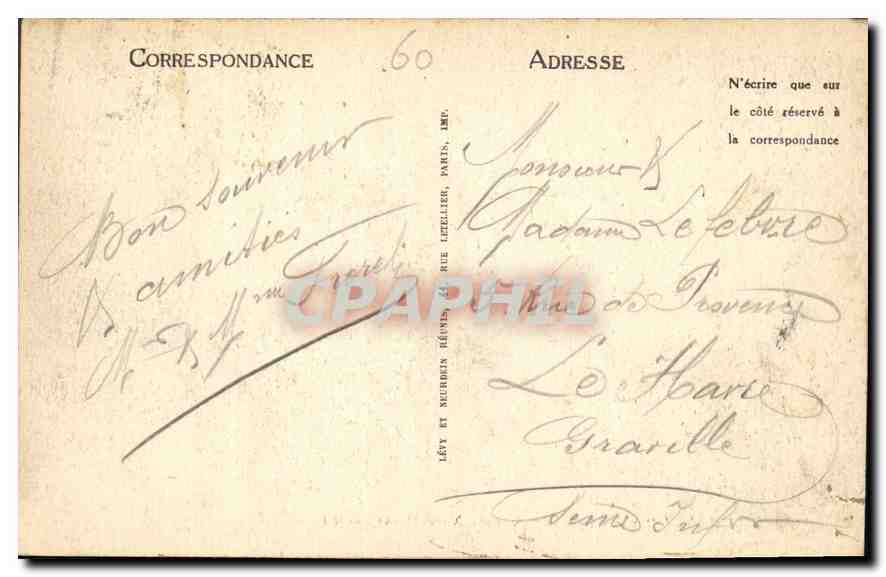 CORRESPONDANCE
60
ADRESSE
N'écrire que sur
le côté réservé à
la correspondance
Bon Souvenir
& amitiés
Mr & Mme
LÉVY ET NEURDEIN RÉUNIS, 44 RUE LETELLIER, PARIS, IMP.
Monsieur &
Madame Lefebvre
Rue de Provence
Le Havre
Graville
Seine Infre
CPAPHIL